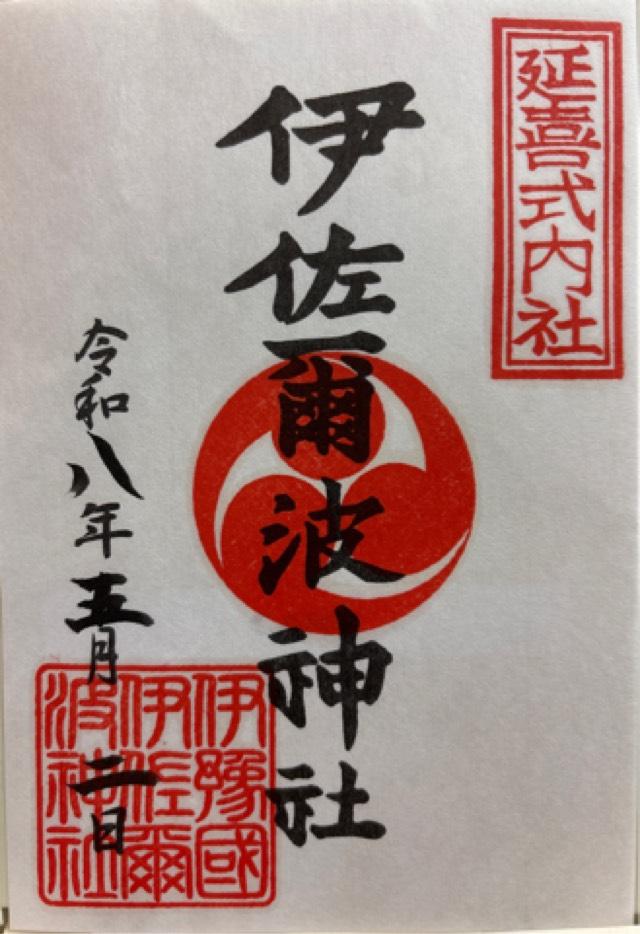 延喜式内社
伊佐爾波神社
令和八年五月二日
伊豫國
伊佐爾
波神社